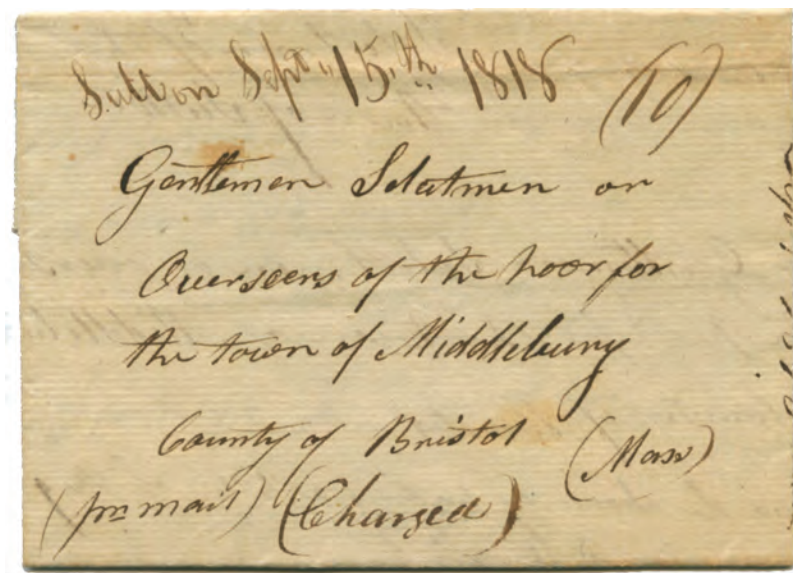 Sutton Sept 15th 1818 (10)
Gentlemen Selectmen or
Overseers of the Poor for
the town of Middlebury
County of Bristol (Mass)
(pr mail) (Charged)